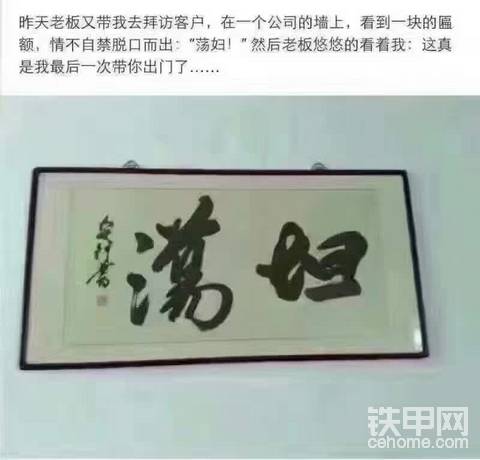 昨天老板又带我去拜访客户，在一个公司的墙上，看到一块的匾
额，情不自禁脱口而出：“荡妇！” 然后老板悠悠的看着我：这真
是我最后一次带你出门了……
坦蕩
铁甲网
cehome.com